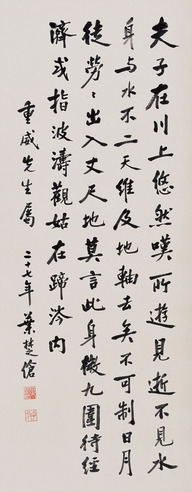 夫子在川上悠然嘆所遊見逝不見水
身与水不二天維及地軸去矣不可制日月
徒勞〻出入丈尺地莫言此身微九圍待經
濟或指波濤觀姑在蹄涔内
重威先生屬
二十七年 葉楚傖